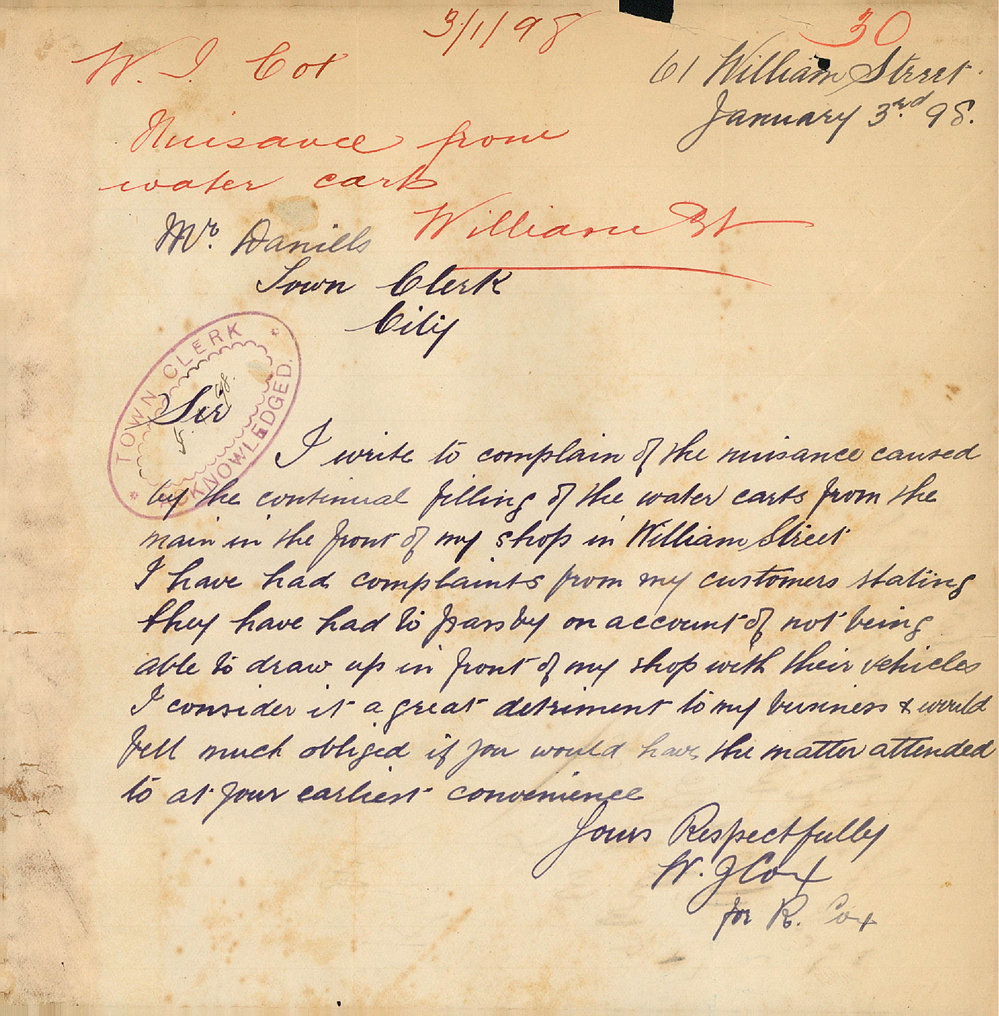 3/1/98
30
W. J. Cox
61 William Street.
January 3rd 98.
Nuisance from
water carts
William St
Mr. Daniells
Town Clerk
City
TOWN CLERK
ACKNOWLEDGED.
Sir
I write to complain of the nuisance caused
by the continual filling of the water carts from the
main in the front of my shop in William Street
I have had complaints from my customers stating
they have had to pass by on account of not being
able to draw up in front of my shop with their vehicles
I consider it a great detriment to my business & would
fell much obliged if you would have the matter attended
to at your earliest convenience
Yours Respectfully
W. J Cox
for R. Cox